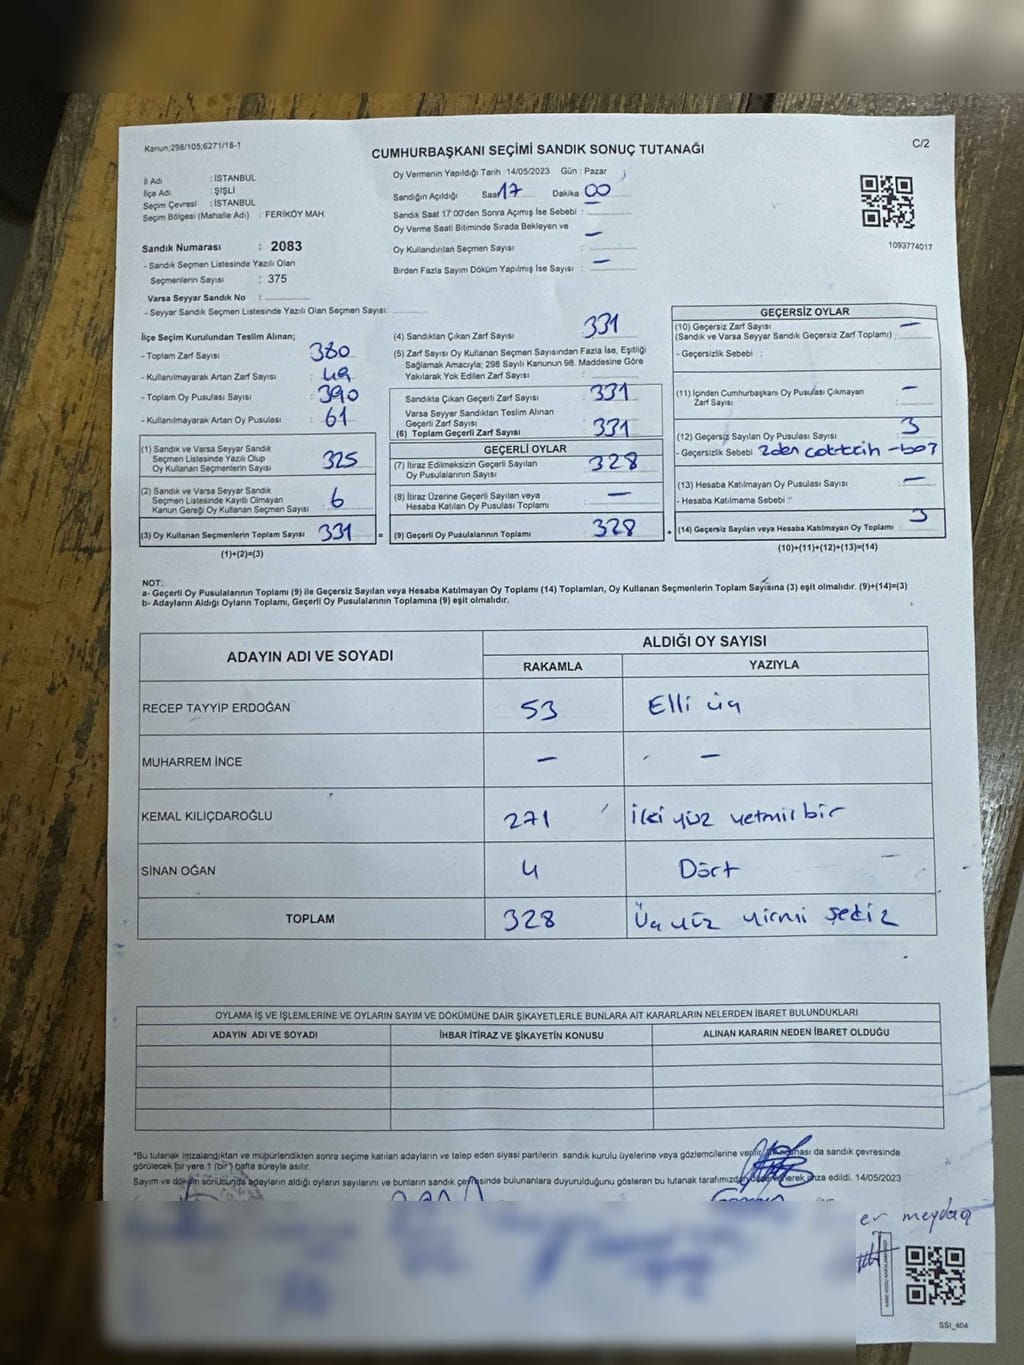 Kanun;298/105;6271/18-1
CUMHURBAŞKANI SEÇİMİ SANDIK SONUÇ TUTANAĞI
C/2
İl Adı : İSTANBUL
İlçe Adı : ŞİŞLİ
Seçim Çevresi : İSTANBUL
Seçim Bölgesi (Mahalle Adı) : FERİKÖY MAH.
Sandık Numarası : 2083
- Sandık Seçmen Listesinde Yazılı Olan
Seçmenlerin Sayısı : 375
Varsa Seyyar Sandık No :
- Seyyar Sandık Seçmen Listesinde Yazılı Olan Seçmen Sayısı:
Oy Vermenin Yapıldığı Tarih : 14/05/2023 Gün : Pazar
Sandığın Açıldığı Saat 17 Dakika 00
Sandık Saat 17:00'den Sonra Açımış İse Sebebi :
Oy Verme Saati Bitiminde Sırada Bekleyen ve —
Oy Kullandırılan Seçmen Sayısı :
Birden Fazla Sayım Döküm Yapılmış İse Sayısı : —
1093774017
İlçe Seçim Kurulundan Teslim Alınan;
- Toplam Zarf Sayısı 380
- Kullanılmayarak Artan Zarf Sayısı 49
- Toplam Oy Pusulası Sayısı 390
- Kullanılmayarak Artan Oy Pusulası 61
(1) Sandık ve Varsa Seyyar Sandık
Seçmen Listesinde Yazılı Olup
Oy Kullanan Seçmenlerin Sayısı 325
(2) Sandık ve Varsa Seyyar Sandık
Seçmen Listesinde Kayıtlı Olmayan
Kanun Gereği Oy Kullanan Seçmen Sayısı 6
(3) Oy Kullanan Seçmenlerin Toplam Sayısı 331
(1)+(2)=(3)
(4) Sandıktan Çıkan Zarf Sayısı 331
(5) Zarf Sayısı Oy Kullanan Seçmen Sayısından Fazla İse, Eşitliği
Sağlamak Amacıyla; 298 Sayılı Kanunun 98. Maddesine Göre
Yakılarak Yok Edilen Zarf Sayısı :
Sandıkta Çıkan Geçerli Zarf Sayısı 331
Varsa Seyyar Sandıktan Teslim Alınan
Geçerli Zarf Sayısı
(6) Toplam Geçerli Zarf Sayısı 331
GEÇERLİ OYLAR
(7) İtiraz Edilmeksizin Geçerli Sayılan
Oy Pusulalarının Sayısı 328
(8) İtiraz Üzerine Geçerli Sayılan veya
Hesaba Katılan Oy Pusulası Toplamı —
= (9) Geçerli Oy Pusulalarının Toplamı 328
GEÇERSİZ OYLAR
(10) Geçersiz Zarf Sayısı —
(Sandık ve Varsa Seyyar Sandık Geçersiz Zarf Toplamı) :
- Geçersizlik Sebebi :
(11) İçinden Cumhurbaşkanı Oy Pusulası Çıkmayan —
Zarf Sayısı :
(12) Geçersiz Sayılan Oy Pusulası Sayısı 3
- Geçersizlik Sebebi 2den
(13) Hesaba Katılmayan Oy Pusulası Sayısı : —
- Hesaba Katılmama Sebebi :
+ (14) Geçersiz Sayılan veya Hesaba Katılmayan Oy Toplamı 3
(10)+(11)+(12)+(13)=(14)
NOT:
a- Geçerli Oy Pusulalarının Toplamı (9) ile Geçersiz Sayılan veya Hesaba Katılmayan Oy Toplamı (14) Toplamları, Oy Kullanan Seçmenlerin Toplam Sayısına (3) eşit olmalıdır. (9)+(14)=(3)
b- Adayların Aldığı Oyların Toplamı, Geçerli Oy Pusulalarının Toplamına (9) eşit olmalıdır.
ADAYIN ADI VE SOYADI
ALDIĞI OY SAYISI
RAKAMLA YAZIYLA
RECEP TAYYİP ERDOĞAN 53 Elli üç
MUHARREM İNCE — —
KEMAL KILIÇDAROĞLU 271 İki yüz yetmiş bir
SİNAN OĞAN 4 Dört
TOPLAM 328 Üç yüz yirmi sekiz
OYLAMA İŞ VE İŞLEMLERİNE VE OYLARIN SAYIM VE DÖKÜMÜNE DAİR ŞİKAYETLERLE BUNLARA AİT KARARLARIN NELERDEN İBARET BULUNDUKLARI
ADAYIN ADI VE SOYADI İHBAR İTİRAZ VE ŞİKAYETİN KONUSU ALINAN KARARIN NEDEN İBARET OLDUĞU
*Bu tutanak imzalandıktan ve mühürlendikten sonra seçime katılan adayların ve talep eden siyasi partilerin sandık kurulu üyelerine veya gözlemcilerine verilir. da sandık çevresinde
görülecek bir yere 1 (bir) hafta süreyle asılır.
Sayım ve döküm sonucunda adayların aldığı oyların sayılarını ve bunların sandık çevresinde bulunanlara duyurulduğunu gösteren bu tutanak tarafımızdan imza edildi. 14/05/2023
er meydan
SSI_404